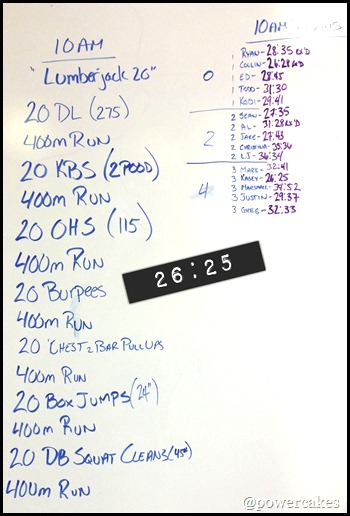 10AM
"Lumberjack 20"
20 DL (275)
400m RUN
20 KBS (2POOD)
400m RUN
20 OHS (115)
400m RUN
20 Burpees
400m RUN
20 CHEST 2 BAR PULLUPS
400m RUN
20 BOX JUMPS (24")
400m RUN
20 DB SQUAT CLEANS (45#)
400m RUN
10AM
0
RYAN - 28:35 RX'D
COLLIN - 26:28 RX'D
ED - 28:45
TODD - 31:30
KODI - 29:41
2
2 SEAN - 27:35
2 AL - 31:28 RX'D
2 JAKE - 27:43
2 CHRISTINA - 35:36
2 LJ - 36:34
4
3 MARK - 32:41
3 KASEY - 26:25
3 MARSHALL - 34:52
3 JUSTIN - 29:37
3 GREG - 32:33
26:25
@powercakes